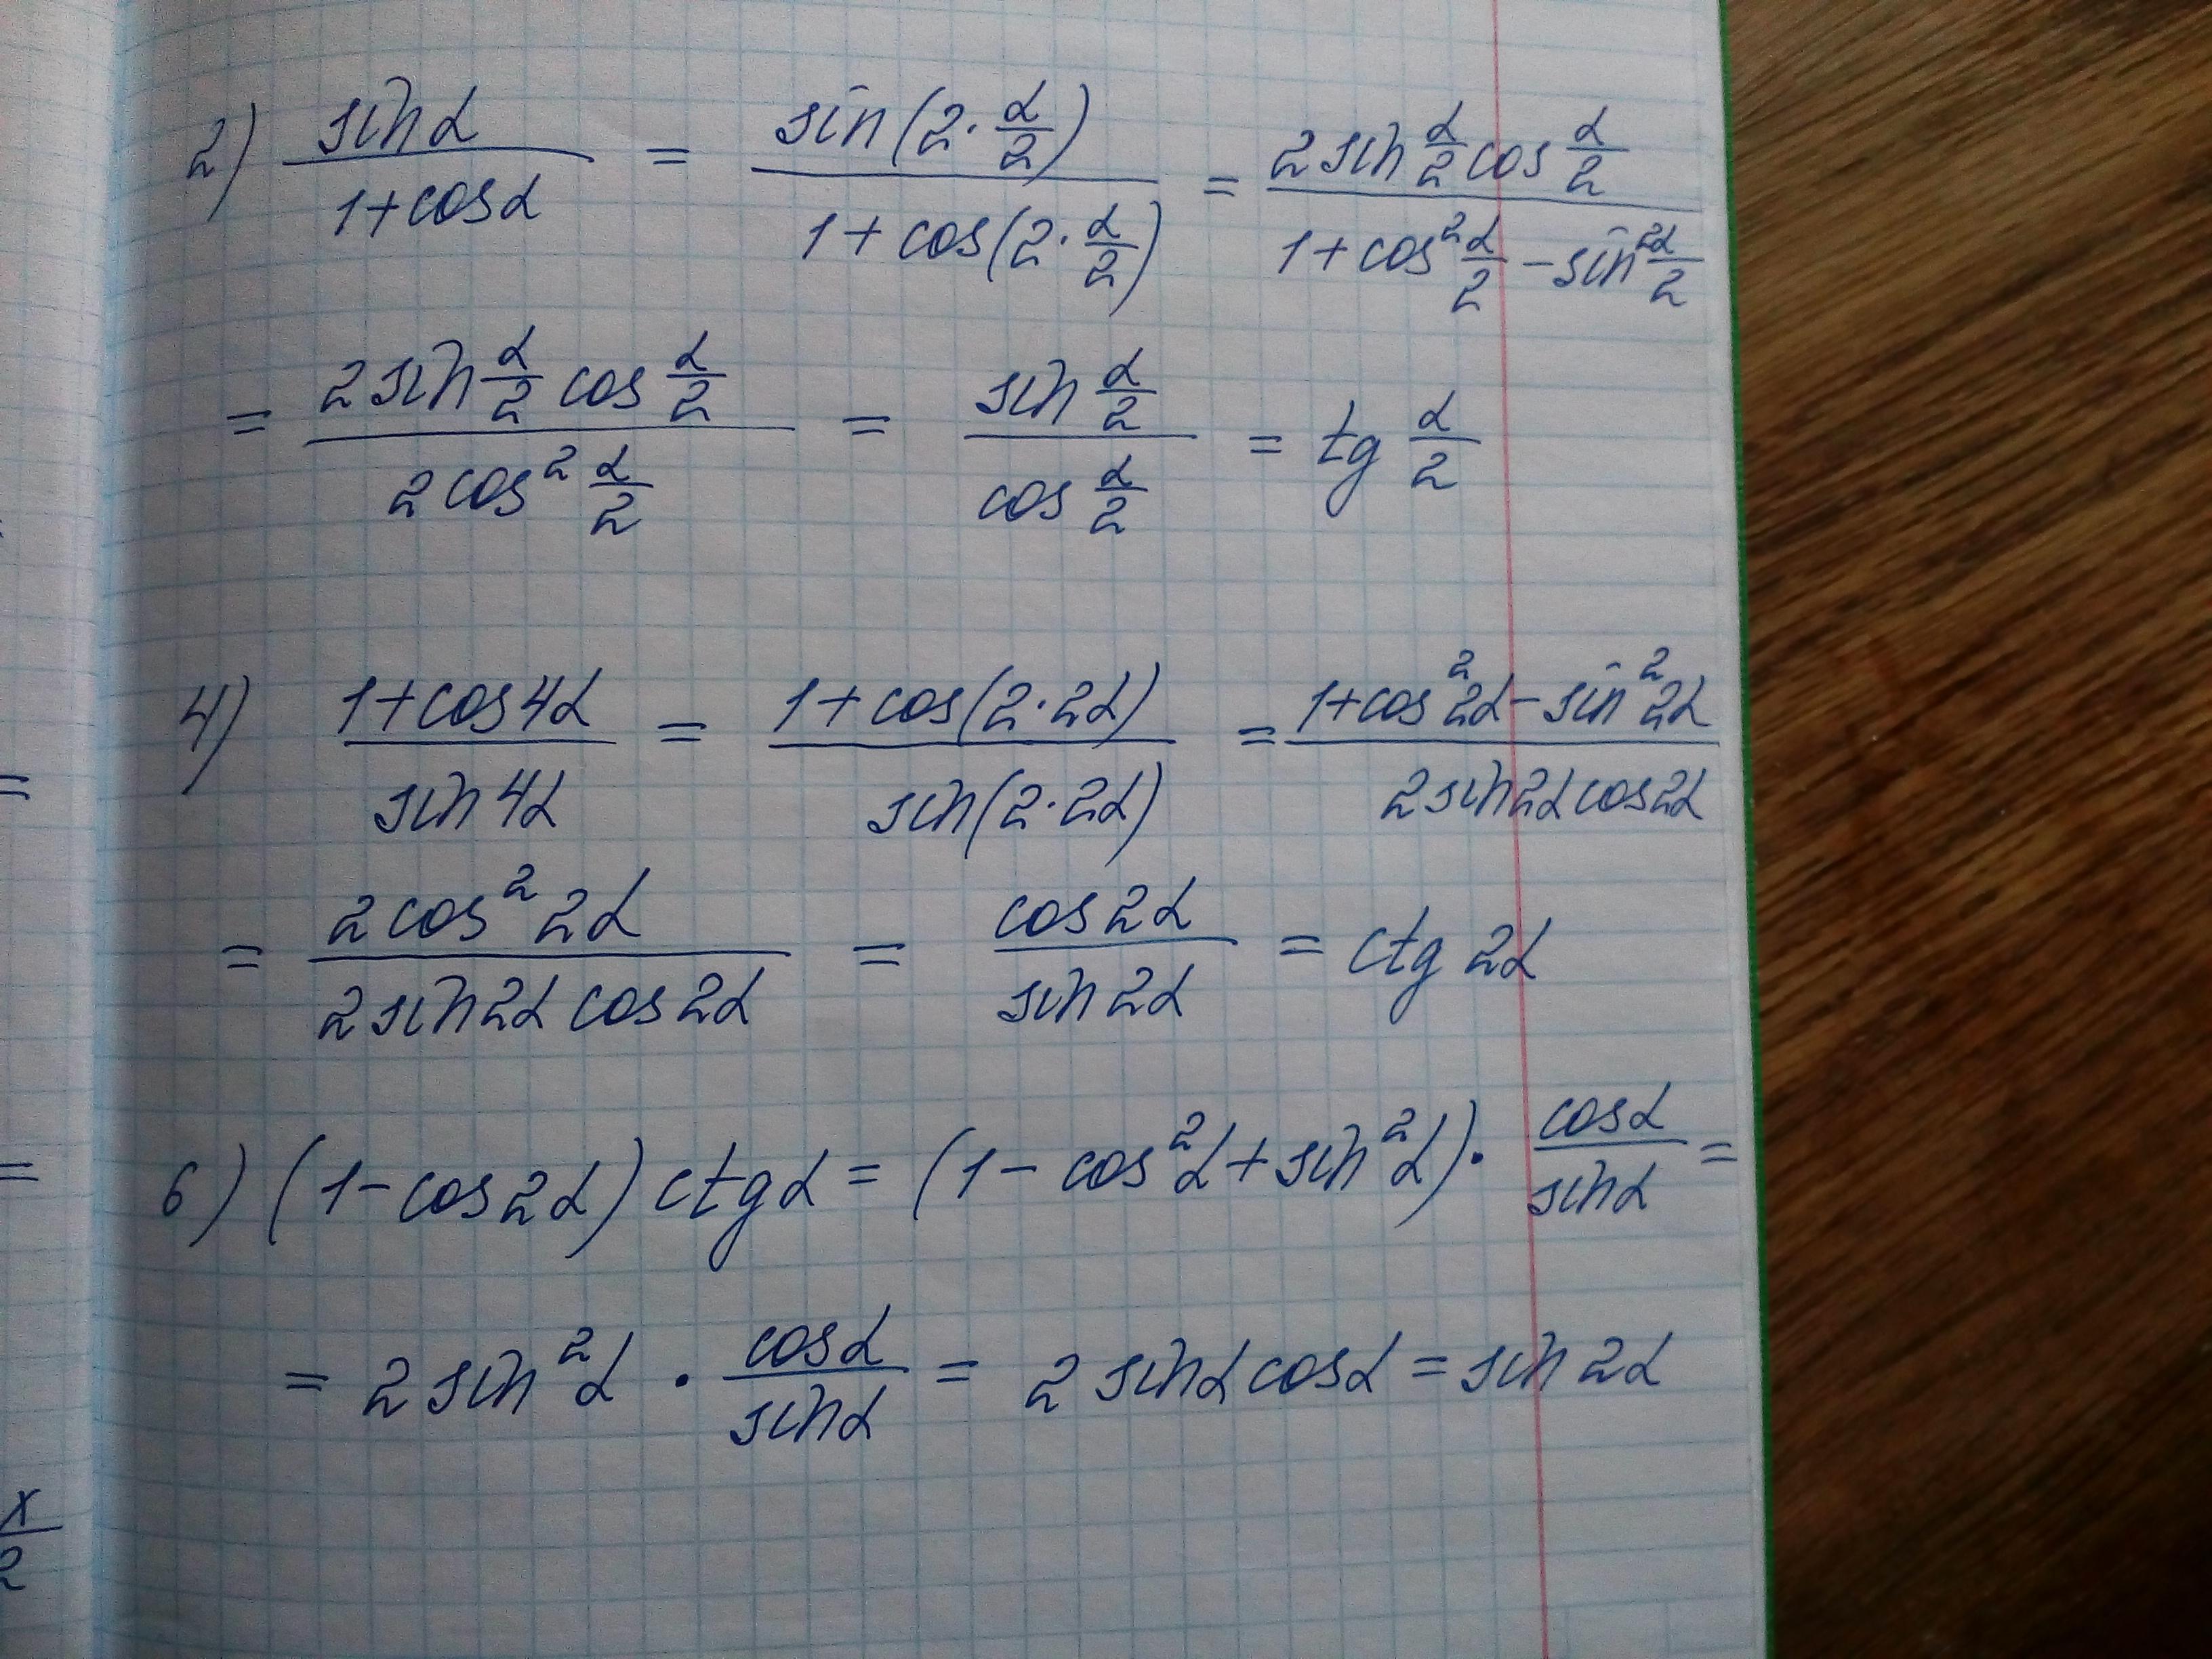 2) sinα / (1+cosα) = sin(2·α/2) / (1+cos(2·α/2)) = 2sin α/2 cos α/2 / (1+cos² α/2 − sin² α/2)
= 2sin α/2 cos α/2 / (2cos² α/2) = sin α/2 / cos α/2 = tg α/2
4) (1+cos4α) / sin4α = (1+cos(2·2α)) / sin(2·2α) = (1+cos²2α−sin²2α) / (2sin2αcos2α)
= 2cos²2α / (2sin2αcos2α) = cos2α / sin2α = ctg 2α
6) (1−cos2α)ctgα = (1−cos²α+sin²α)· cosα / sinα =
= 2sin²α · cosα / sinα = 2sinαcosα = sin2α
=
=
x/2